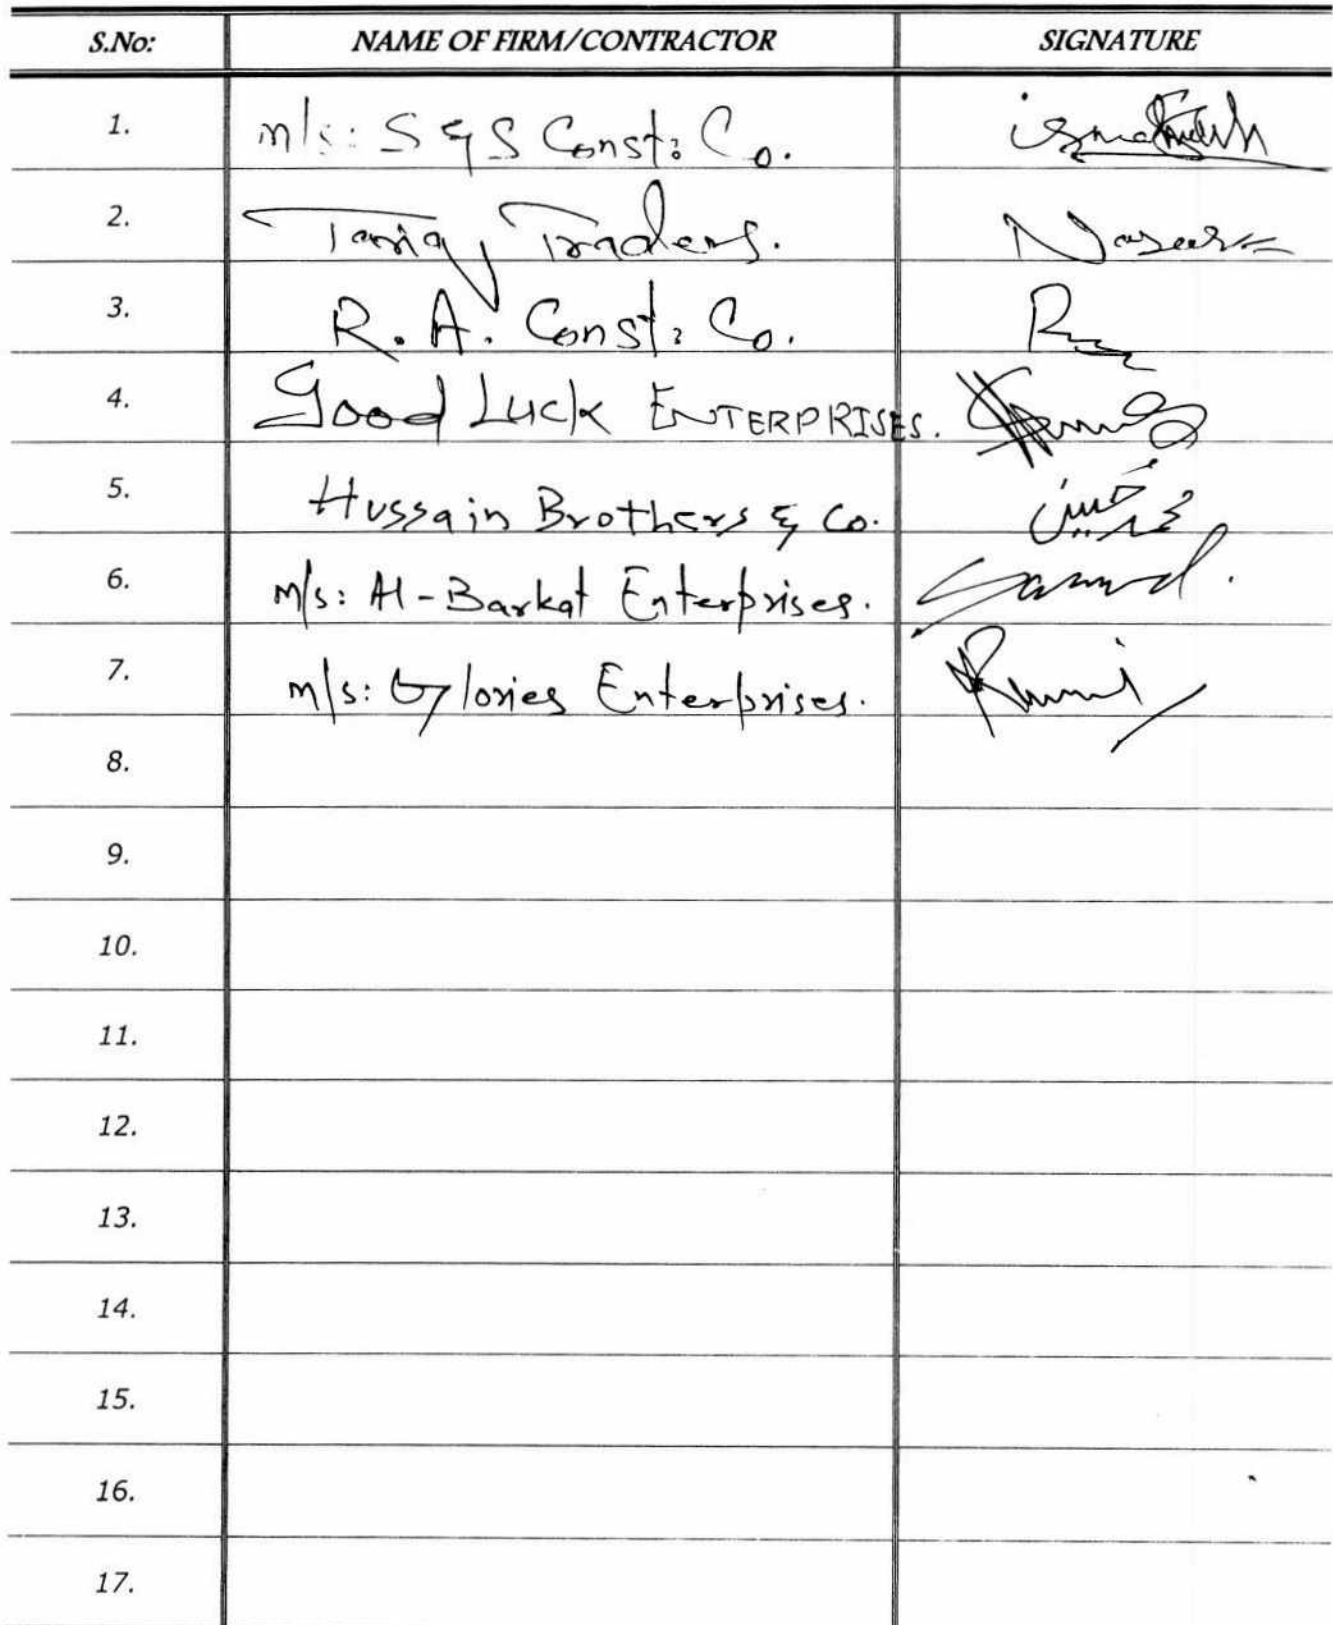 S.No: NAME OF FIRM/CONTRACTOR SIGNATURE
1. m/s: S & S Const: Co.
2. Tariq Traders. Naseer
3. R. A. Const: Co.
4. Good Luck ENTERPRISES.
5. Hussain Brothers & Co. محمد حسین
6. m/s: Al-Barkat Enterprises.
7. m/s: Glories Enterprises.
8.
9.
10.
11.
12.
13.
14.
15.
16.
17.